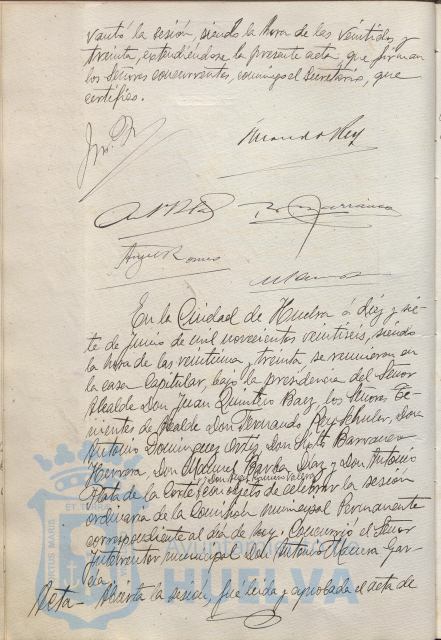 vantó la sesión, siendo la hora de las veintidos y
treinta, extendiéndose la presente acta, que firman
los Señores concurrentes, conmigo el Secretario, que
certifico.
Fernando Rey
Barranca
Angel Romero
En la Ciudad de Huelva á diez y sie-
te de junio de mil novecientos veintiseis, siendo
la hora de las veintiuna, treinta se reunieron en
la casa Capitular, bajo la presidencia del Señor
Alcalde Don Juan Quintero Baez los Señores Te-
nientes de Alcalde Don Fernando Rey Schuler, Don
Antonio Dominguez Ortiz, Don Sixto Barranca
Herrera, Don Manuel Barba Diaz y Don Antonio
y Don Angel Romero
Plata de la Corte, con objeto de celebrar la sesión
ordinaria de la Comisión municipal Permanente
correspondiente al día de hoy. Concurrió el Señor
Interventor municipal Don Antonio Gar-
cía.
Acta - Abierta la sesión, fué leida y aprobada el acta de
ET TERRAE
PORTUS MARIS
HUELVA